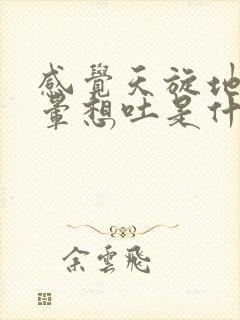 感覺天旋地
暈想吐是什
余雲飛